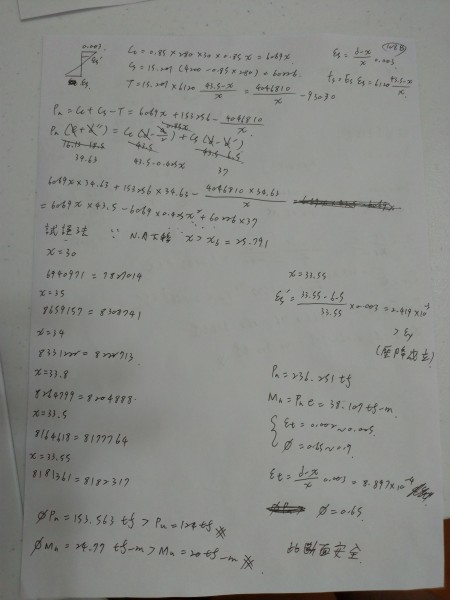 0.003
εs'
εs
Cc = 0.85 × 280 × 30 × 0.85 x = 6069x
Cs = 15.201 (4200 - 0.85 × 280) = 60226
T = 15.201 × 6120 (43.5-x)/x = 4046810/x - 93030
εs = (d-x)/x 0.003
fs = Es εs = 6120 (43.5-x)/x
Pn = Cc + Cs - T = 6069x + 153256 - 4046810/x
34.63
43.5 - 0.425x
37
6069x × 34.63 + 153256 × 34.63 - (4046810 × 34.63)/x
= 6069x × 43.5 - 6069 × 0.425x² + 60226 × 37
試誤法 ∵ x > xb = 25.791
x = 30
6940971 = 7827014
x = 35
8659157 = 8308741
x = 34
x = 33.8
8264799 = 8204888
x = 33.5
8164618 = 8177764
x = 33.55
8181361 = 8182317
x = 33.55
εs' = (33.55 - 6.5)/33.55 × 0.003 = 2.419 × 10⁻³
> εy
(壓降成立)
Pn = 236.251 tf
Mn = Pn e = 38.107 tf-m
εt = 0.002 ~ 0.005
Ø = 0.65 ~ 0.9
εt = (d-x)/x 0.003 = 8.897 × 10⁻⁴
Ø = 0.65
ØPn = 153.563 tf > Pu = 124 tf
ØMn = 24.77 tf-m > Mu = 20 tf-m
此斷面安全